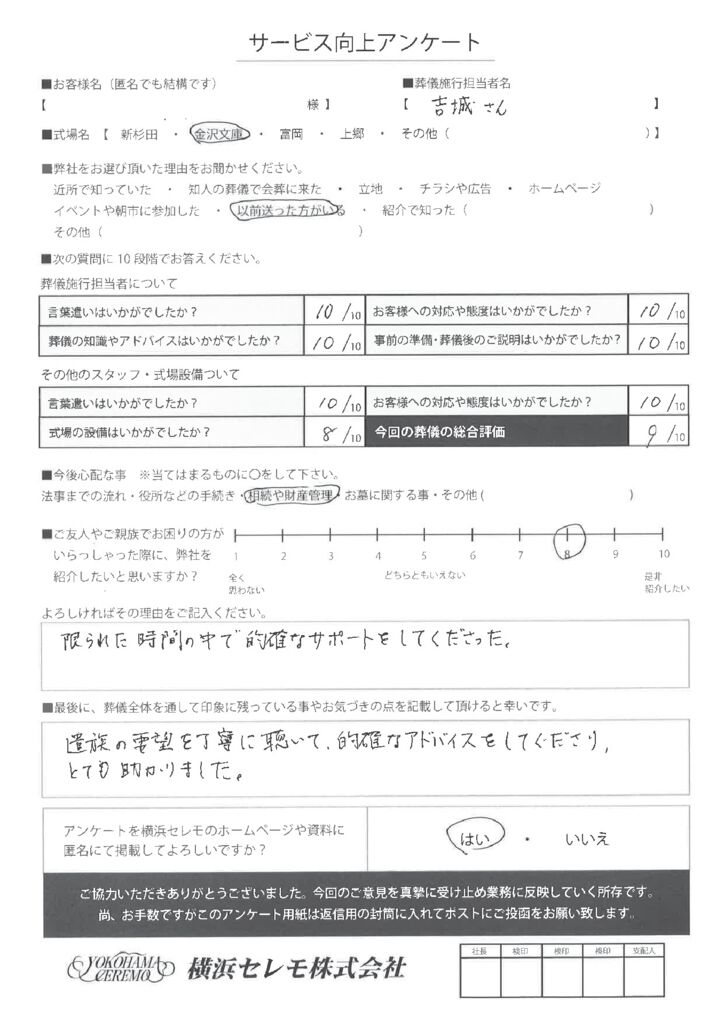 サービス向上アンケート
■お客様名（匿名でも結構です） ■葬儀施行担当者名
【 様 】 【 吉城さん 】
■式場名 【 新杉田 ・ 金沢文庫 ・ 富岡 ・ 上郷 ・ その他（ ）】
■弊社をお選び頂いた理由をお聞かせください。
近所で知っていた ・ 知人の葬儀で会葬に来た ・ 立地 ・ チラシや広告 ・ ホームページ
イベントや朝市に参加した ・ 以前送った方がいる ・ 紹介で知った（ ）
その他（ ）
■次の質問に10段階でお答えください。
葬儀施行担当者について
言葉遣いはいかがでしたか？ 10 /10 お客様への対応や態度はいかがでしたか？ 10 /10
葬儀の知識やアドバイスはいかがでしたか？ 10 /10 事前の準備・葬儀後のご説明はいかがでしたか？ 10 /10
その他のスタッフ・式場設備ついて
言葉遣いはいかがでしたか？ 10 /10 お客様への対応や態度はいかがでしたか？ 10 /10
式場の設備はいかがでしたか？ 8 /10 今回の葬儀の総合評価 9 /10
■今後心配な事 ※当てはまるものに〇をして下さい。
法事までの流れ・役所などの手続き・相続や財産管理・お墓に関する事・その他（ ）
■ご友人やご親族でお困りの方が
いらっしゃった際に、弊社を
紹介したいと思いますか？
1 2 3 4 5 6 7 8 9 10
全く思わない どちらともいえない 是非紹介したい
よろしければその理由をご記入ください。
限られた時間の中で的確なサポートをしてくださった。
■最後に、葬儀全体を通して印象に残っている事やお気づきの点を記載して頂けると幸いです。
遺族の要望を丁寧に聴いて、的確なアドバイスをしてくださり、
とても助かりました。
アンケートを横浜セレモのホームページや資料に
匿名にて掲載してよろしいですか？
はい ・ いいえ
ご協力いただきありがとうございました。今回のご意見を真摯に受け止め業務に反映していく所存です。
尚、お手数ですがこのアンケート用紙は返信用の封筒に入れてポストにご投函をお願い致します。
YOKOHAMA
CEREMO
横浜セレモ株式会社
社長 検印 検印 検印 支配人